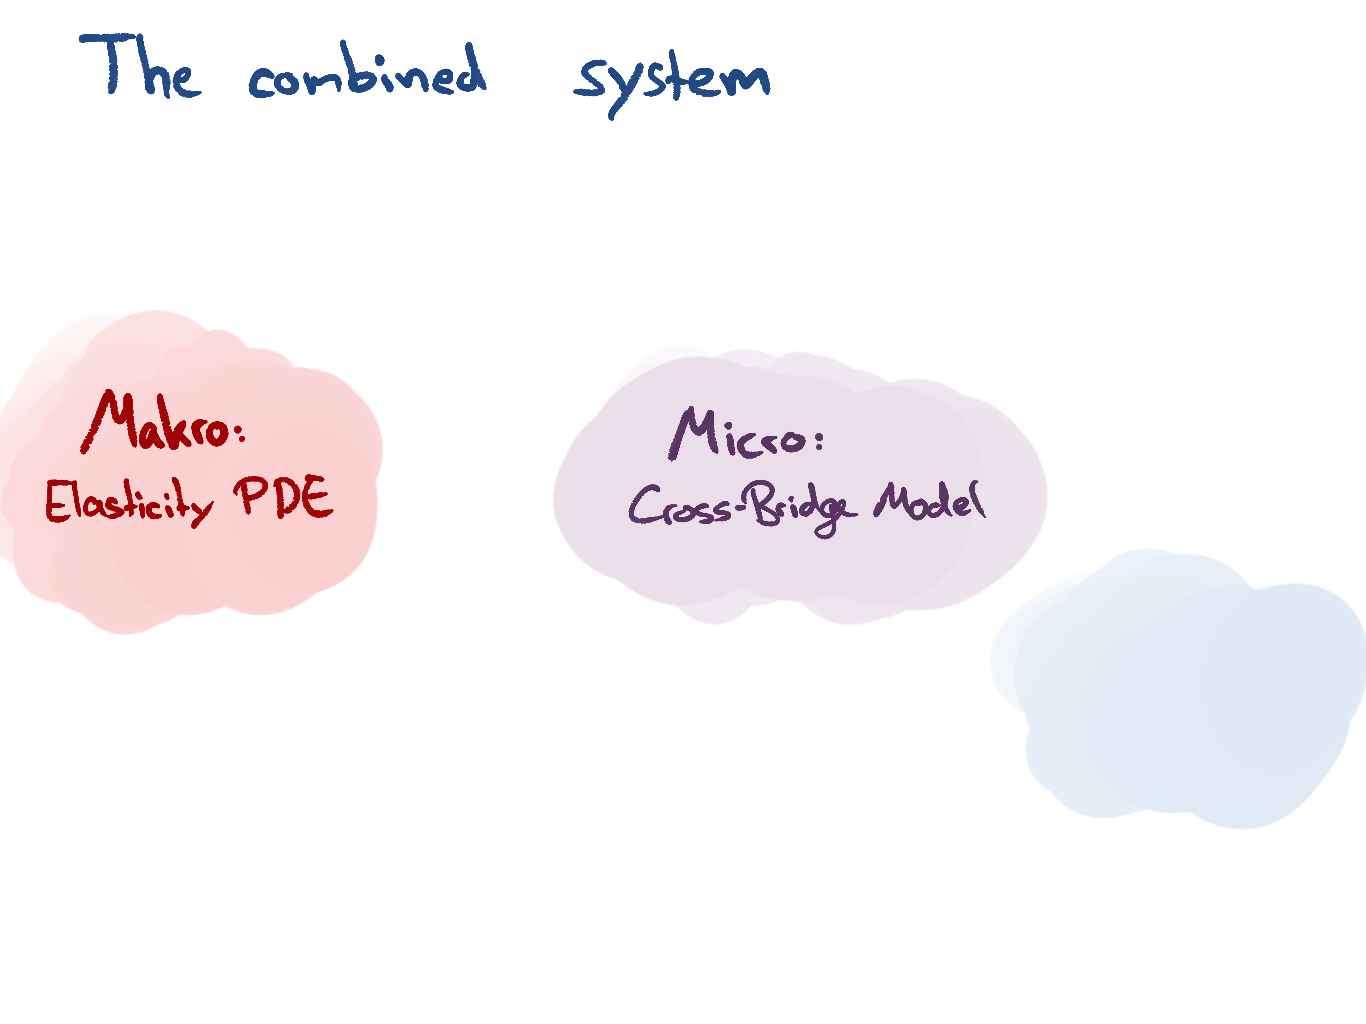 The combined system
Makro:
Elasticity PDE
Micro:
Cross-Bridge Model